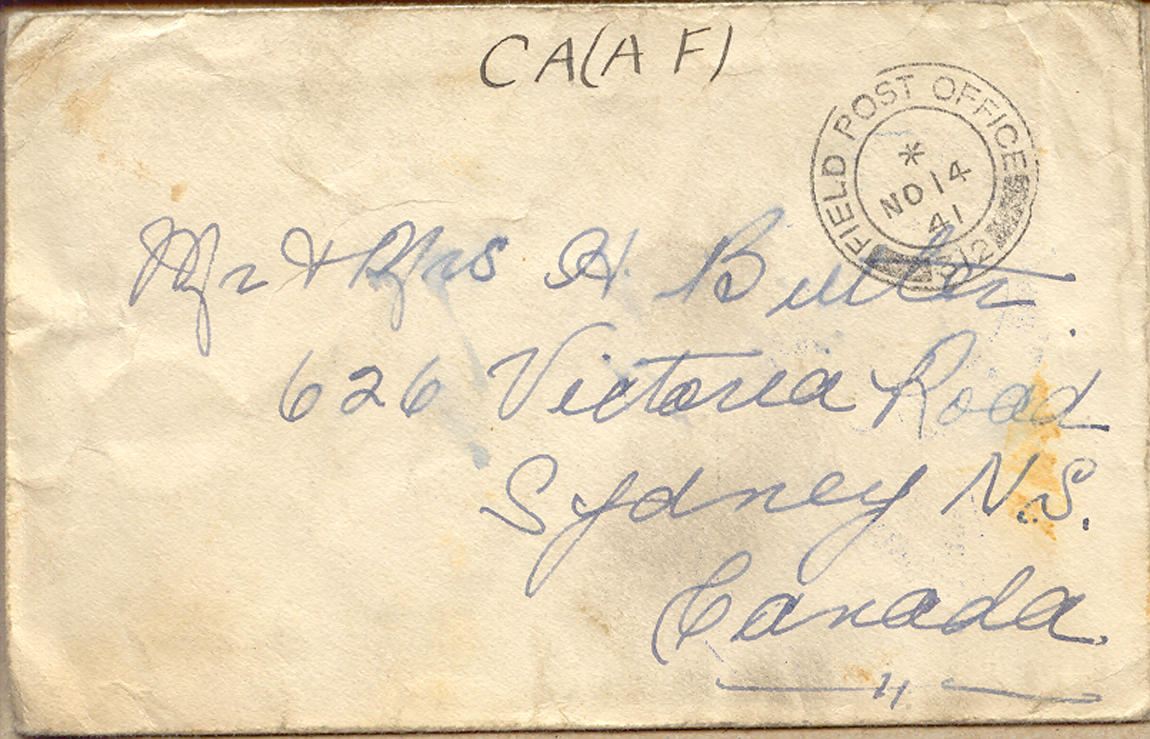 CA(A F)
FIELD POST OFFICE
*
NO 14
41
512
Mr & Mrs H. Butler
626 Victoria Road
Sydney N.S.
Canada.